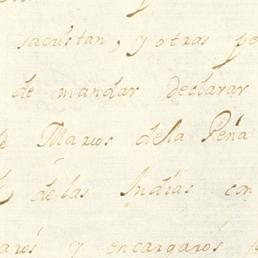 sacristan, y otras pe
de mandar declarar
Marcos de la Peña
de las Indias con
y encargaros